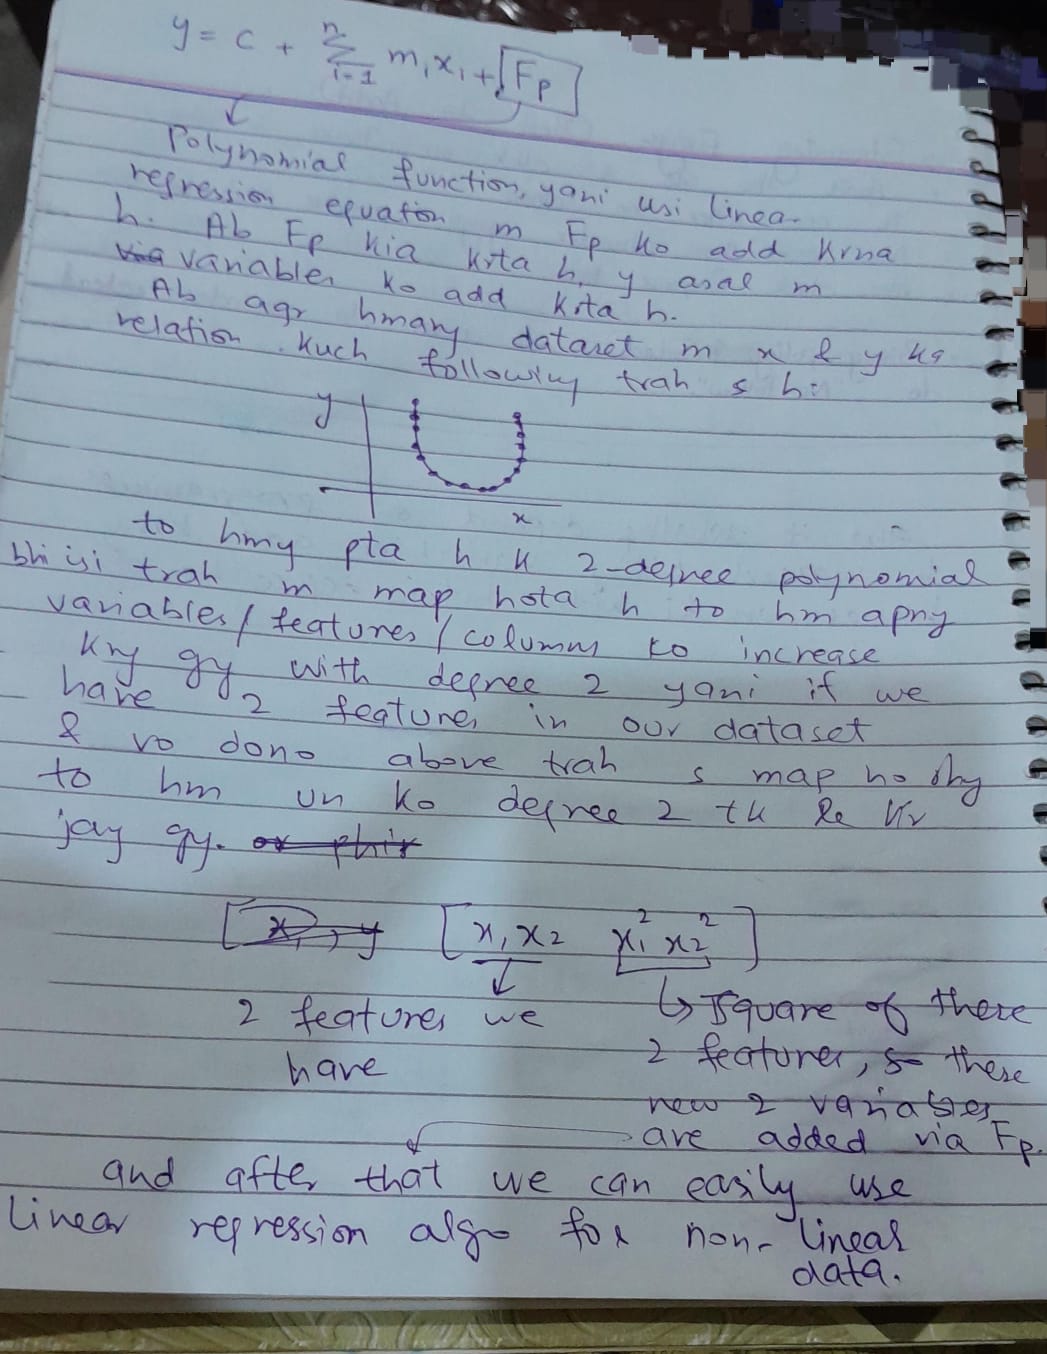 y = c + n Σ i=1 mixi + Fp
Polynomial function, yani usi linea.
regression equation m Fp ko add krna
h. Ab Fp kia krta h, y asal m
variables ko add krta h.
Ab agr hmary dataset m x & y ka
relation kuch following trah s h:
y
x
to hmy pta h k 2-degree polynomial
bhi isi trah m map hota h to hm apny
variables / features / columns ko increase
kry gy with degree 2 yani if we
have 2 features in our dataset
& vo dono above trah s map ho rhy
to hm un ko degree 2 tk le kr
jay gy. or phir
[x1, y [x1 x2 x1² x2²]
2 features we have
↳ square of these
2 features, so these
new 2 variables
are added via Fp.
and after that we can easily use
linear regression algo for non-linear
data.